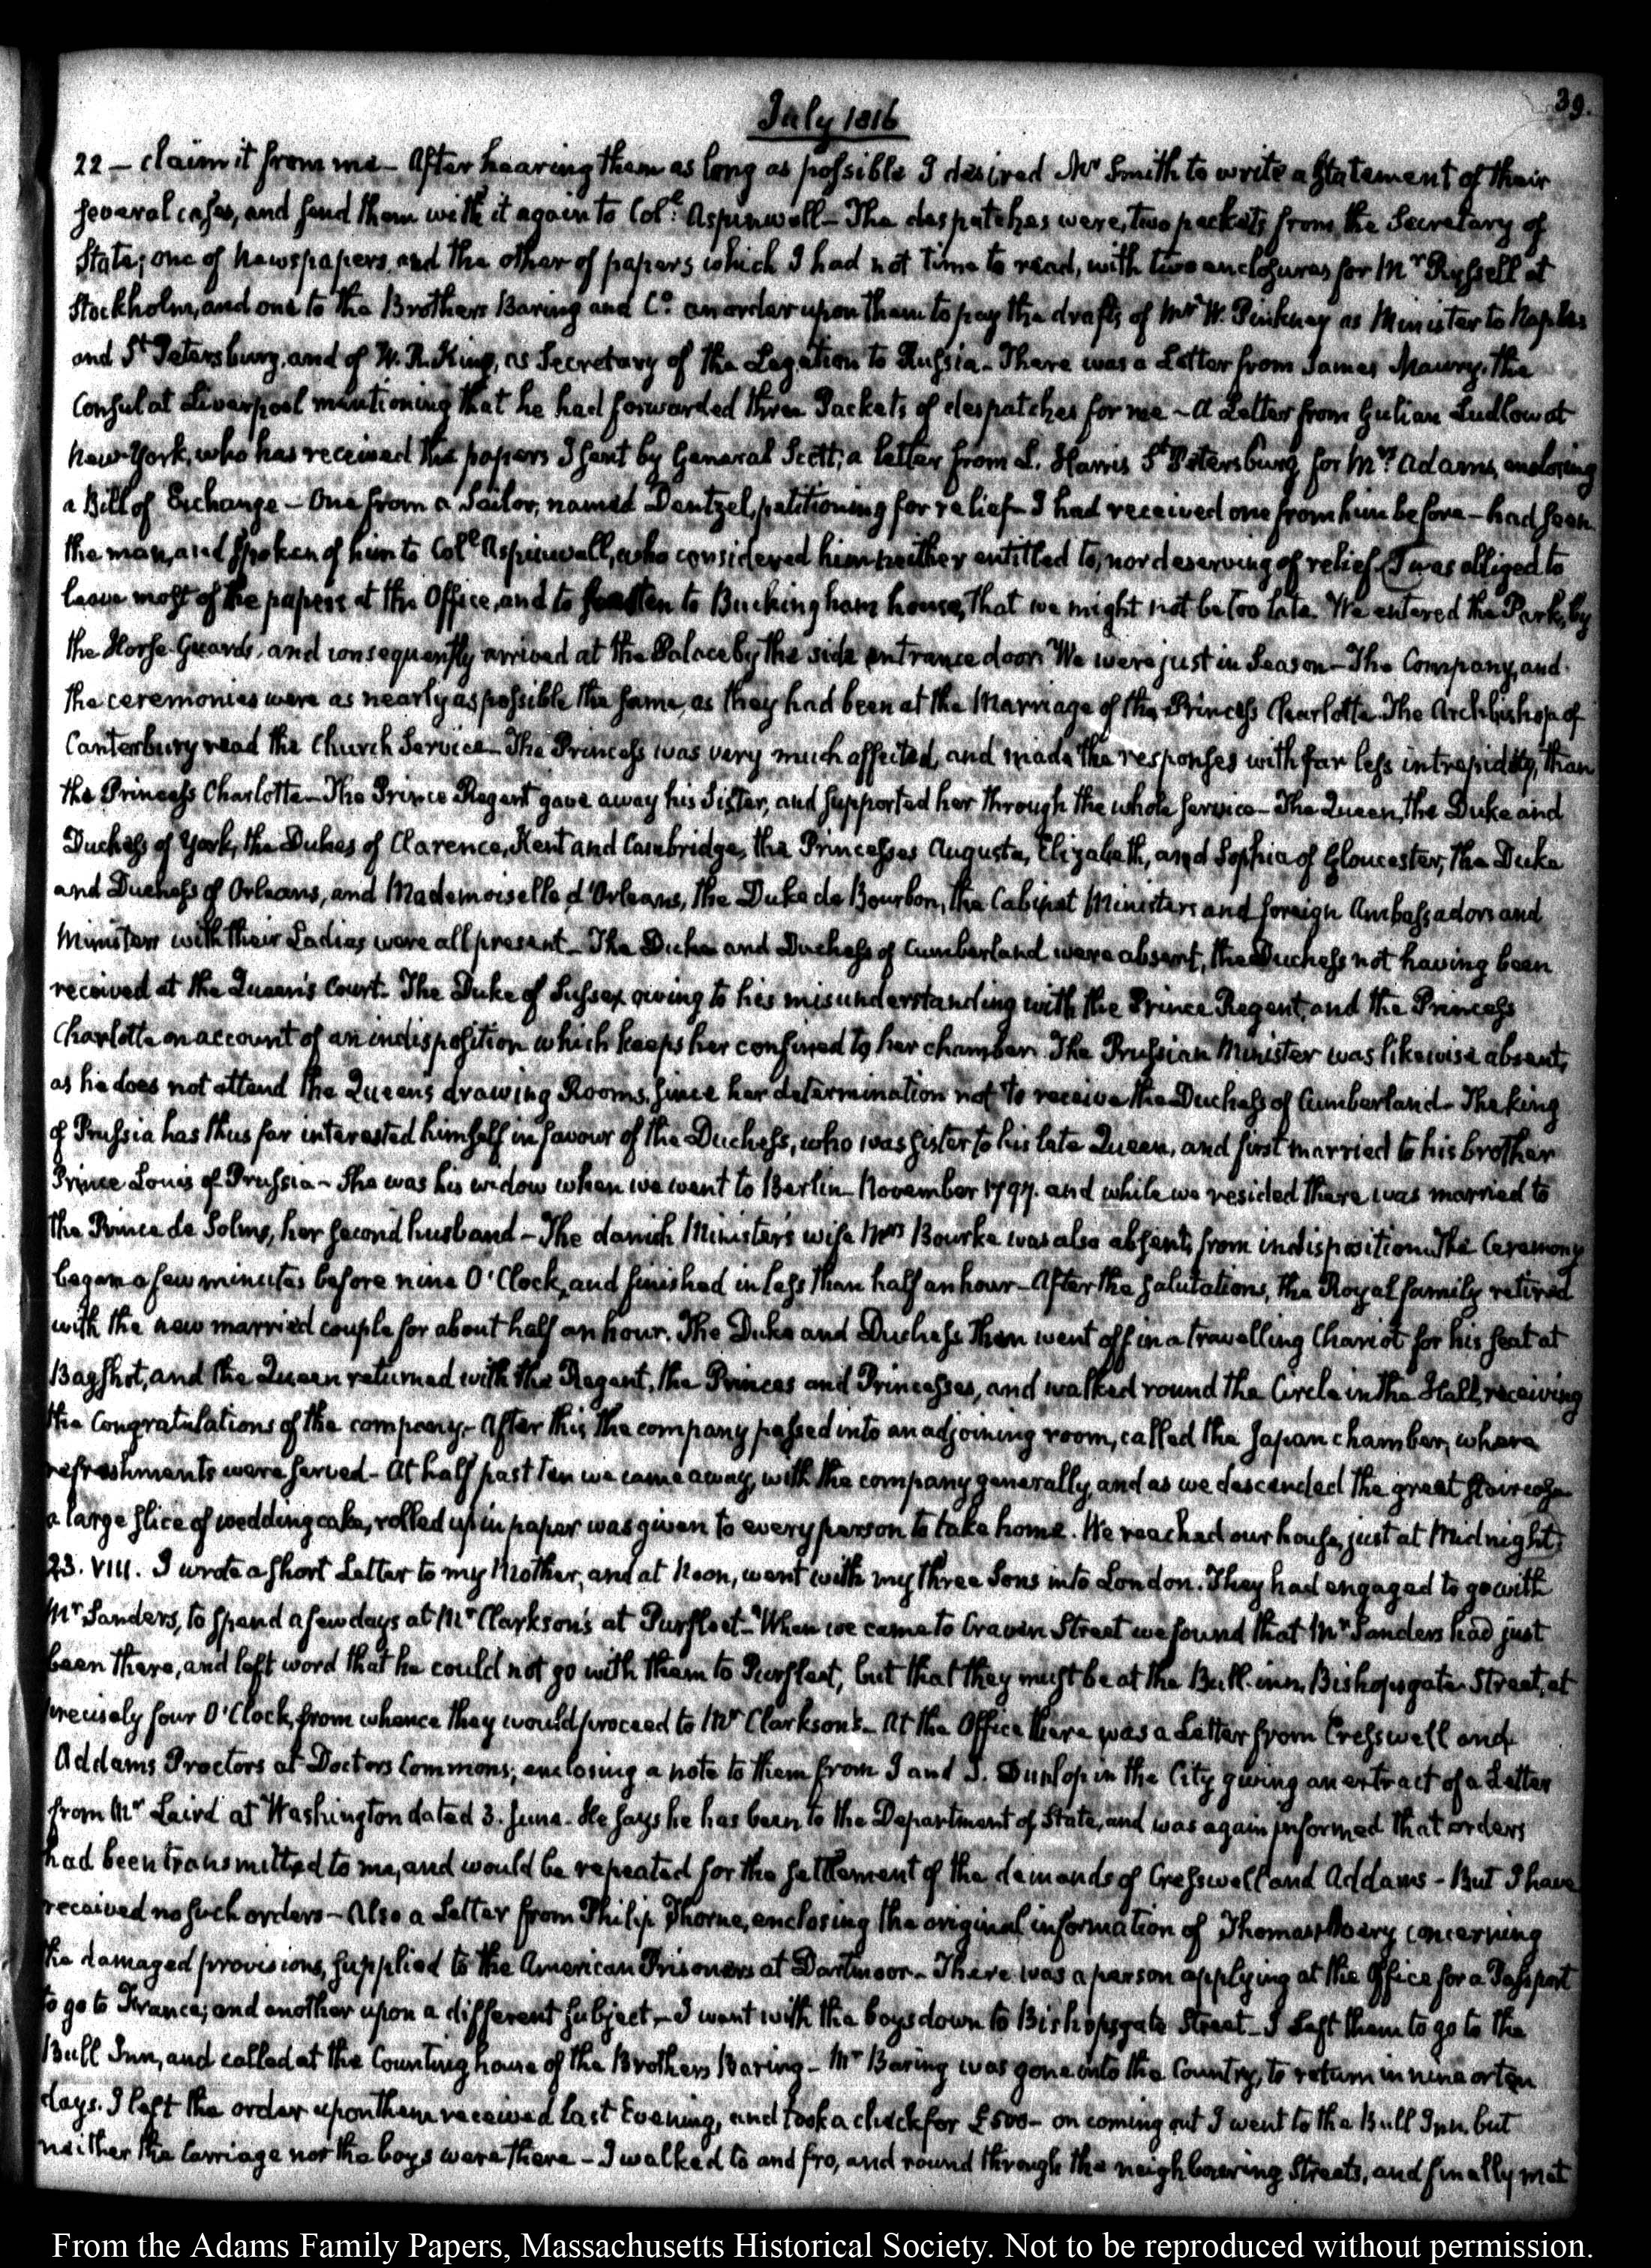 39.
July 1816
22 — claim it from me — After hearing them as long as possible I desired Mr Smith to write a Statement of their
several cases, and send them with it again to Coll. Aspinwall — The despatches were, two packets from the Secretary of
State; one of Newspapers, and the other of papers which I had not time to read, with two enclosures for Mr Russell at
Stockholm, and one to the Brothers Baring and Co. an order upon them to pay the drafts of Mr W. Pinkney as Minister to Naples
and St Petersburg, and of W. R. King, as Secretary of the Legation to Russia — There was a Letter from James Maury, the
Consul at Liverpool mentioning that he had forwarded three Packets of despatches for me — A Letter from Gulian Ludlow at
New-York, who has received the papers I sent by General Scott; a letter from L. Harris St Petersburg for Mrs Adams, enclosing
a Bill of Exchange — One from a Sailor, named Dentzel, petitioning for relief — I had received one from him before — had seen
the man, and spoken of him to Coll Aspinwall, who considered him neither entitled to, nor deserving of relief. I was obliged to
leave most of the papers at the Office, and to hasten to Buckingham house, that we might not be too late. We entered the Park, by
the Horse-Guards, and consequently arrived at the Palace by the side entrance door. We were just in Season — The Company, and
the ceremonies were as nearly as possible the same, as they had been at the Marriage of the Princess Charlotte. The Archbishop of
Canterbury read the Church Service — The Princess was very much affected, and made the responses with far less intrepidity, than
the Princess Charlotte — The Prince Regent gave away his Sister, and supported her through the whole service — The Queen, the Duke and
Duchess of York, the Dukes of Clarence, Kent and Cambridge, the Princesses Augusta, Elizabeth, and Sophia of Gloucester; the Duke
and Duchess of Orleans, and Mademoiselle d'Orleans, the Duke de Bourbon, the Cabinet Ministers and foreign Ambassadors and
Ministers with their Ladies, were all present — The Duke and Duchess of Cumberland were absent, the Duchess not having been
received at the Queen's Court. The Duke of Sussex owing to his misunderstanding with the Prince Regent, and the Princess
Charlotte on account of an indisposition which keeps her confined to her chamber. The Prussian Minister was likewise absent,
as he does not attend the Queens drawing Rooms, since her determination not to receive the Duchess of Cumberland — The king
of Prussia has thus far interested himself in favour of the Duchess, who was sister to his late Queen, and first married to his brother
Prince Louis of Prussia — She was his widow when we went to Berlin November 1797. and while we resided there was married to
the Prince de Solms, her second husband — The danish Minister's wife Mrs Bourke was also absent, from indisposition. The Ceremony
began a few minutes before nine O'Clock, and finished in less than half an hour — After the salutations, the Royal family retired
with the new married couple for about half an hour. The Duke and Duchess then went off in a travelling Chariot for his seat at
Bagshot, and the Queen returned with the Regent, the Princes and Princesses, and walked round the Circle in the Hall, receiving
the Congratulations of the company — After this, the company passed into an adjoining room, called the Japan chamber, where
refreshments were served — At half past ten we came away, with the company generally, and as we descended the great staircase
a large slice of wedding cake, rolled up in paper was given to every person to take home. We reached our house, just at Midnight.
23. VIII. I wrote a short Letter to my Mother, and at Noon, went with my three Sons into London. They had engaged to go with
Mr Sanders, to spend a few days at Mr Clarkson's at Purfleet — When we came to Craven Street we found that Mr Sanders had just
been there, and left word that he could not go with them to Purfleet, but that they must be at the Bull-inn, Bishopsgate Street, at
precisely four O'Clock, from whence they would proceed to Mr Clarkson's — At the Office there was a Letter from Cresswell and
Addams Proctors at Doctors Commons; enclosing a note to them from J and J. Dunlop in the City giving an extract of a Letter
from Mr Laird at Washington dated 3. June — He says he has been to the Department of State, and was again informed that orders
had been transmitted to me, and would be repeated for the settlement of the demands of Cresswell and Addams — But I have
received no such orders — Also a Letter from Philip Thorne, enclosing the original information of Thomas concerning
the damaged provisions, supplied to the American Prisoners at Dartmoor — There was a person applying at the Office for a Passport
to go to France; and another upon a different subject — I went with the boys down to Bishopsgate Street — I left them to go to the
Bull Inn, and called at the Counting house of the Brothers Baring — Mr Baring was gone into the Country, to return in nine or ten
days. I left the order upon them received last Evening, and took a check for £500 — on coming out I went to the Bull Inn, but
neither the carriage nor the boys were there — I walked to and fro, and round through the neighbouring Streets, and finally met
From the Adams Family Papers, Massachusetts Historical Society. Not to be reproduced without permission.